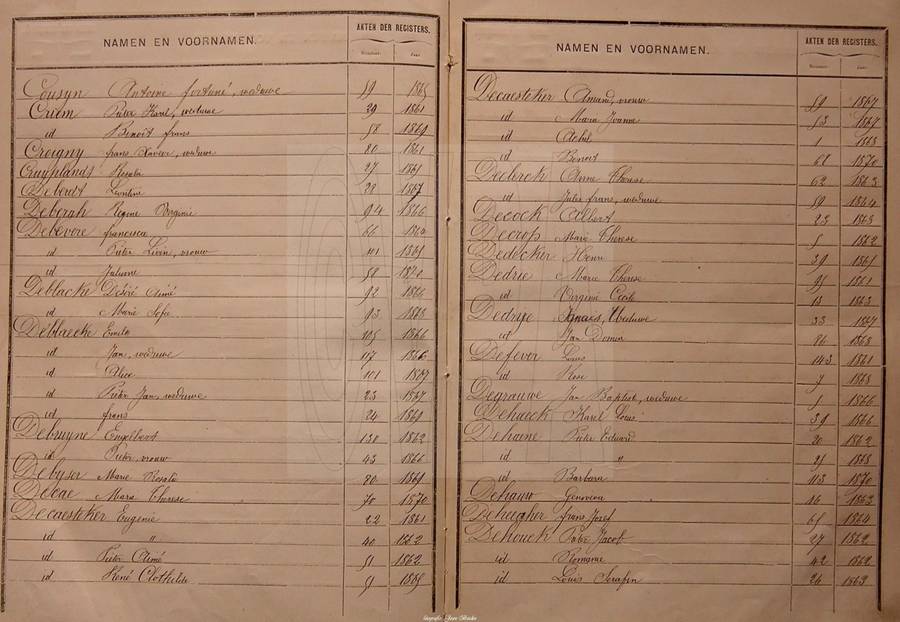 NAMEN EN VOORNAMEN. AKTEN DER REGISTERS.
Cousyn Antoine fortuné, weduwe 59
Criem Pieter Karel, weduwe 29 1861
id Benoit frans 58 1869
Creigny frans Xavier, weduwe 80 1861
Cruyplandt Rosalie 27
Debeudt Leontine 28 1867
Deborgh Regine Virginie 94 1866
Debevere francisca 66 1864
id Pieter Livin, vrouw 101
id Juliane 58 1870
Deblacke Désiré Aimé 92 1866
id Marie Sofie 93 1868
Deblaecke Emile 105 1866
id Jan, weduwe 117 1866
id Alice 101
id Pieter Jan, weduwe 23 1867
id frans 24 1869
Debruyne Engelbert 130 1862
id Pieter, vrouw 43 1866
Debyser Marie Rosalie 80 1861
Decae Marie Therese 70 1870
Decaesteker Eugenie 22 1861
id " 40 1862
id Pieter Aimé 51 1862
id René Clothilde
NAMEN EN VOORNAMEN. AKTEN DER REGISTERS.
Decaesteker Amand, vrouw 59 1867
id Maria Joanna 53 1869
id Achil 1 1868
id Benoit 68 1870
Declerck Anne Therese 62 1863
id Jules frans, weduwe 59 1864
Decock Albert 23 1863
Decrop Marie Therese 5 1862
Dedecker Henri 39 1861
Dedrie Marie Therese 95 1861
id Virginie Cecile 13 1863
Dedrye Ignaes, Weduwe 33 1867
id Jan Domin 86 1868
Defever Louis 143 1861
id Rosa 7 1868
Degrauwe Jan Baptist, weduwe 1 1866
Dehaeck Karel Louis 39 1866
Dehaene Pieter Eduard 20 1862
id " 1868
id Barbara 113 1870
Dehauw Genoveva 16 1863
Deheegher frans Josef 65 1864
Dehouck Pieter Jacob 27 1862
id Romanie 42 1862
id Louis Serafin 26 1863